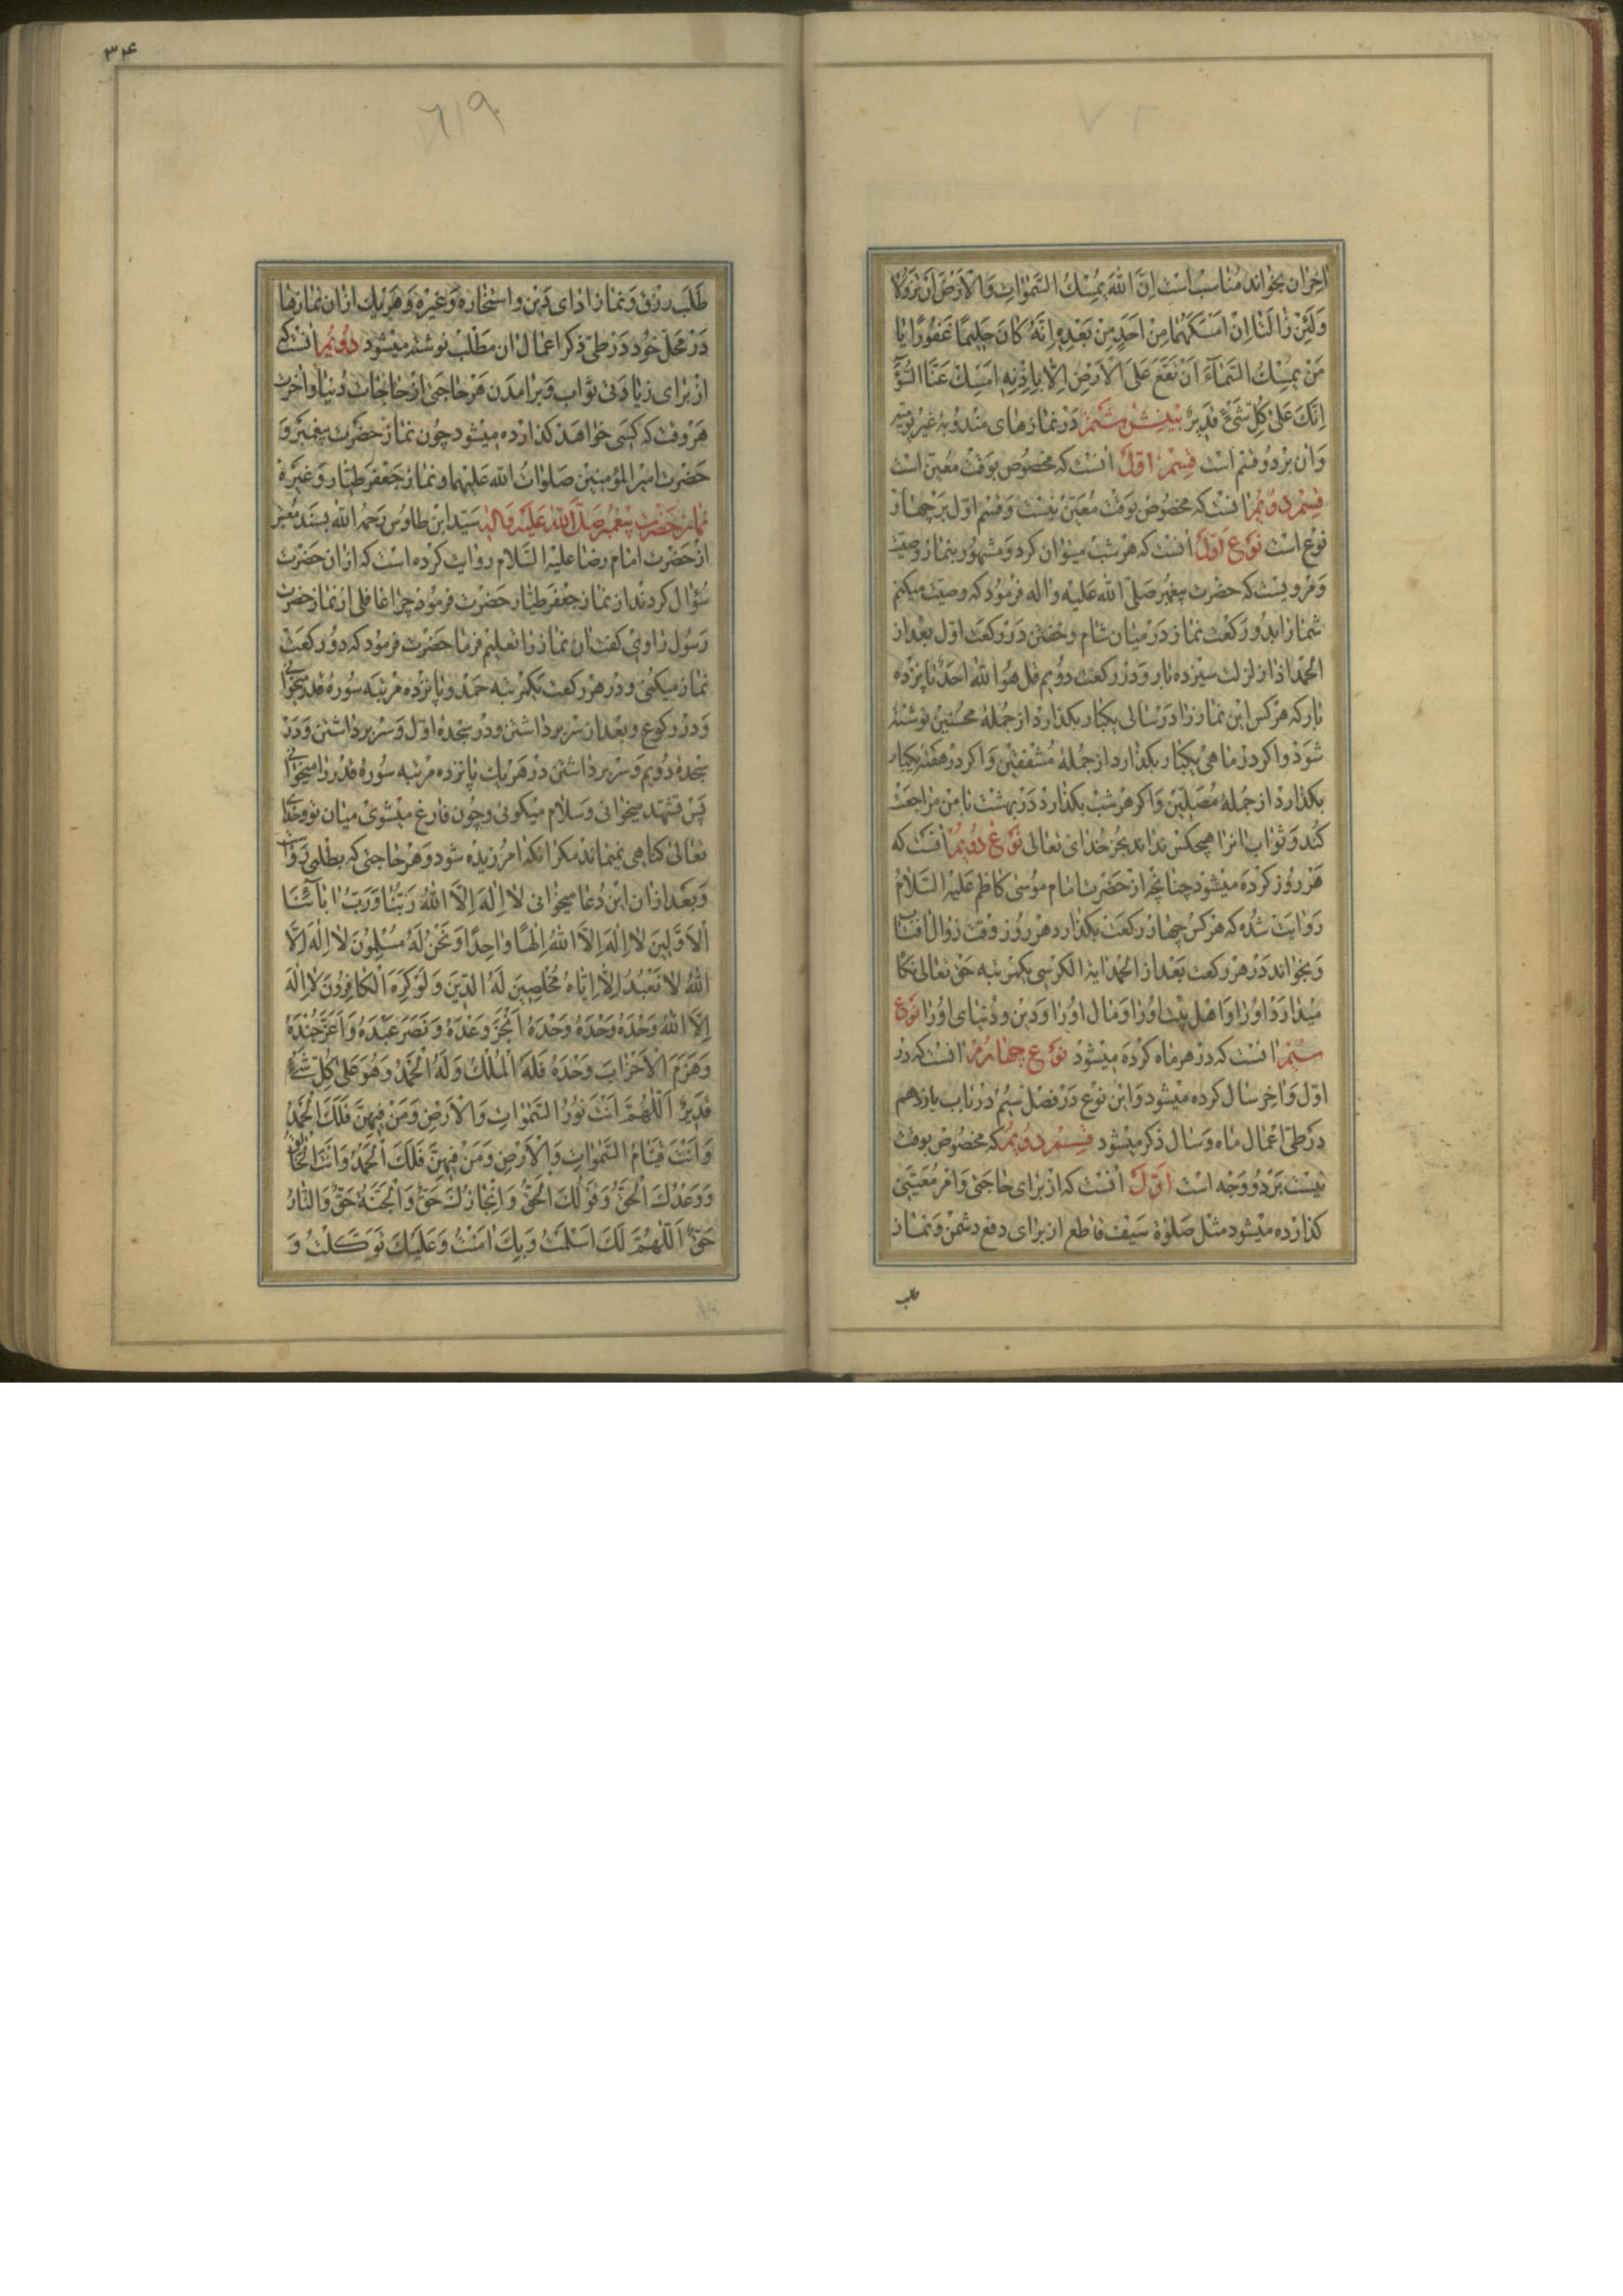 اخران بخواند مناسب است اِنَّ اللهَ یُمْسِكُ السَّمٰواتِ وَالْاَرْضَ اَنْ تَزُولا
وَلَئِنْ زالَتا اِنْ اَمْسَكَهُما مِنْ اَحَدٍ مِنْ بَعْدِهِ اِنَّهُ كانَ حَلیمًا غَفُورًا یا
مَنْ یُمْسِكُ السَّماءَ اَنْ تَقَعَ عَلَی الْاَرْضِ اِلّا بِاِذْنِهِ اَمْسِكْ عَنَّا السُّوٓءَ
اِنَّكَ عَلیٰ كُلِّ شَیْءٍ قَدیرٌ بینش ششم در نمازهای مندوبه غیر یومیه
وان بر دو قسم است قسم اوّل انست که مخصوص بوقت معین است
قسم دویم انست که مخصوص بوقت معین نیست و قسم اول بر چهار
نوع است نوع اوّل انست که هر شب میتوان کرد و مشهور بنماز وصیت
و مرویست که حضرت پیغمبر صلی الله علیه واله فرمود که وصیت میکنم
شما را بدو رکعت نماز در میان شام و خفتن در رکعت اول بعد از
الحمد اذا زلزلت سیزده بار و در رکعت دویم قل هو الله احد پانزده
بار که هر کس این نماز را در سالی یکبار بکذارد از جملهٔ محسنین نوشته
شود و اکر در ماهی یکبار بکذارد از جملهٔ متقین و اکر در هفته یکبار
بکذارد از جملهٔ مصلین و اکر هر شب بکذارد در بهشت با من مزاحمت
کند و ثواب انرا هیچکس نداند بجز خدای تعالی نوع دویم انست که
هر روز کرده میشود چنانچه از حضرت امام موسی کاظم علیه السلام
روایت شده که هر کس چهار رکعت بکذارد هر روز وقت زوال افتاب
و بخواند در هر رکعت بعد از الحمد ایة الکرسی یکمرتبه حق تعالی نکاه
میدارد او را و اهل بیت او را و مال او را و دین و دنیای او را نوع
سیم انست که در هر ماه کرده میشود نوع چهارم انست که در
اول و اخر سال کرده میشود و این نوع در فصل سیم در باب یازدهم
در طی اعمال ماه و سال ذکر میشود قسم دویم که مخصوص بوقت
نیست بر دو وجه است اوّل انست که از برای حاجتی و امر معینی
کذارده میشود مثل صلوة سیف قاطع از برای دفع دشمن و نماز
طلب
۳۴
طلب رزق و نماز ادای دین و استخاره و غیره و هر یك از ان نمازها
در محل خود در طی ذکر اعمال ان مطلب نوشته میشود دویم انست که
از برای زیادتی ثواب و برامدن هر حاجتی از حاجات دنیا و اخرت
هر وقت که کسی خواهد کذارده میشود چون نماز حضرت پیغمبر و
حضرت امیر المؤمنین صلوات الله علیهما و نماز جعفر طیار و غیره
نماز حضرت پیغمبر صلی الله علیه واله سید ابن طاوس رحمه الله بسند معتبر
از حضرت امام رضا علیه السلام روایت کرده است که از ان حضرت
سؤال کردند از نماز جعفر طیار حضرت فرمود چرا غافلی از نماز حضرت
رسول راوی کفت ان نماز را تعلیم فرما حضرت فرمود که دو رکعت
نماز میکنی و در هر رکعت یکمرتبه حمد و پانزده مرتبه سوره قدر میخوانی
و در رکوع و بعد از سر برداشتن و در سجدهٔ اول و سر برداشتن و در
سجدهٔ دویم و سر برداشتن در هر یك پانزده مرتبه سوره قدر را میخوانی
پس تشهد میخوانی و سلام میکوئی و چون فارغ میشوی میان تو و خدای
تعالی کناهی نمیماند مکر انکه امرزیده شود و هر حاجتی که بطلبی رواست
و بعد از ان این دعا میخوانی لا اِلٰهَ اِلَّا اللهُ رَبُّنا وَرَبُّ اٰبآئِنَا
الْاَوَّلینَ لا اِلٰهَ اِلَّا اللهُ اِلٰهًا واحِدًا وَنَحْنُ لَهُ مُسْلِمُونَ لا اِلٰهَ اِلَّا
اللهُ لا نَعْبُدُ اِلّا اِیّاهُ مُخْلِصینَ لَهُ الدّینَ وَلَوْ كَرِهَ الْكافِرُونَ لا اِلٰهَ
اِلَّا اللهُ وَحْدَهُ وَحْدَهُ وَحْدَهُ اَنْجَزَ وَعْدَهُ وَنَصَرَ عَبْدَهُ وَاَعَزَّ جُنْدَهُ
وَهَزَمَ الْاَحْزابَ وَحْدَهُ فَلَهُ الْمُلْكُ وَلَهُ الْحَمْدُ وَهُوَ عَلیٰ كُلِّ شَیْءٍ
قَدیرٌ اَللّٰهُمَّ اَنْتَ نُورُ السَّمٰواتِ وَالْاَرْضِ وَمَنْ فیهِنَّ فَلَكَ الْحَمْدُ
وَاَنْتَ قَیّامُ السَّمٰواتِ وَالْاَرْضِ وَمَنْ فیهِنَّ فَلَكَ الْحَمْدُ وَاَنْتَ الْحَقُّ
وَوَعْدُكَ الْحَقُّ وَقَوْلُكَ الْحَقُّ وَاِنْجازُكَ حَقٌّ وَالْجَنَّةُ حَقٌّ وَالنّارُ
حَقٌّ اَللّٰهُمَّ لَكَ اَسْلَمْتُ وَبِكَ اٰمَنْتُ وَعَلَیْكَ تَوَكَّلْتُ وَ